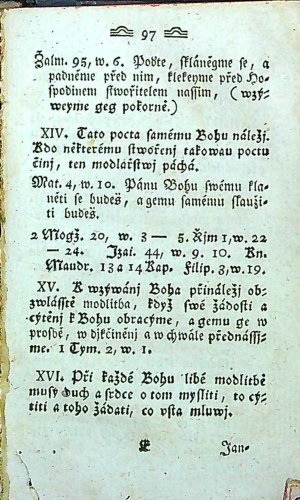 97
Žalm. 95, w. 6. Poďte, skláněgme se, a
padněme před ním, klekeyme před Ho-
spodinem stwořitelem nassim, (wzý-
weyme geg pokorně.)
XIV. Tato pocta samému Bohu náležj.
Kdo některému stwořenj takowau poctu
činj, ten modlářstwj páchá.
Mat. 4, w. 10. Pánu Bohu swému kla-
něti se budeš, a gemu samému slauži-
ti budeš.
2 Mogž. 20, w. 3 — 5. Řjm 1, w. 22
— 24. Izai. 44, w. 9. 10. Kn.
Maudr. 13 a 14 Kap. Filip. 3, w. 19.
XV. K wzýwánj Boha přináležj ob-
zwlásstě modlitba, když swé žádosti a
cýtěnj k Bohu obracýme, a gemu ge w
prosbě, w djkčiněnj a w chwále přednássj-
me. 1 Tym. 2, w. 1.
XVI. Při každé Bohu libé modlitbě
musý duch a srdce o tom mysliti, to cý-
titi a toho žádati, co vsta mluwj.
Jan-